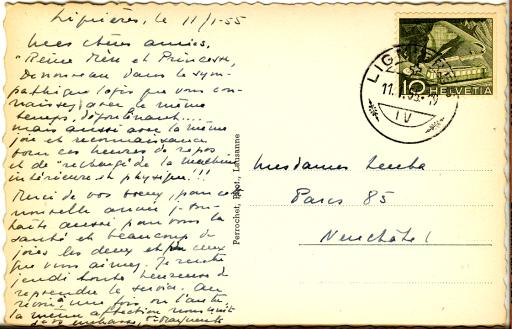 Lignières, le 11/1-55
Mes chères amies,
"Reine Mère et Princesse,
De nouveau dans le sym-
pathique logis que vous con-
naissez, avec le même
temps, dégoûtant....
mais aussi avec la même
joie et reconnaissance
pour ces heures de repos
et de "recharge" de la machine
intérieure et physique!!!
Merci de vos vœux, pour cette
nouvelle année je sou-
haite aussi pour vous la
santé et beaucoup de
joies les deux et ceux
que vous aimez. Je rentre
jeudi toute heureuse de
reprendre le service. Au
revoir une fois ou l'autre
la même affection vous suit
Marguerite
Perrochet, Phot., Lausanne
LIGNIÈRES
11.1.55
IV
10 HELVETIA
Mesdames
Parcs 85
Neuchâtel